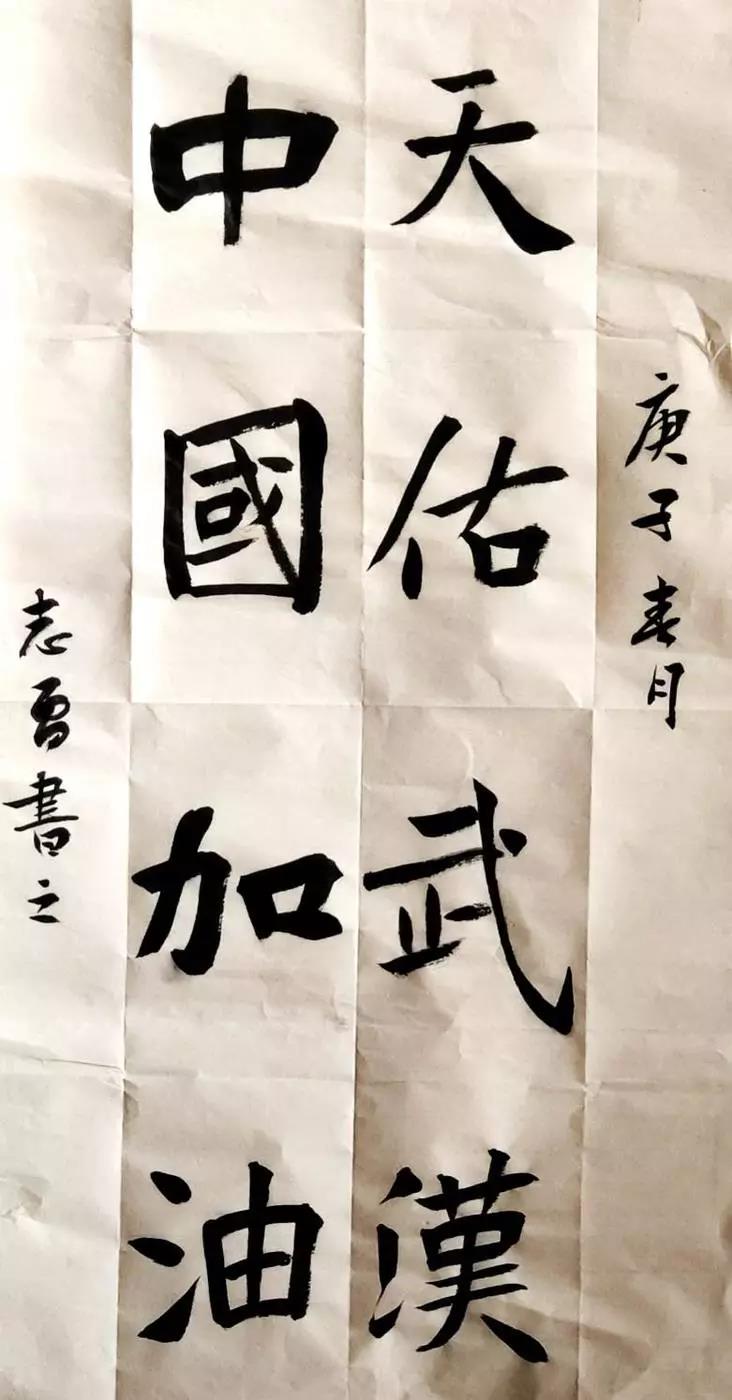 庚子春月
天佑武漢
中國加油
志勇書之